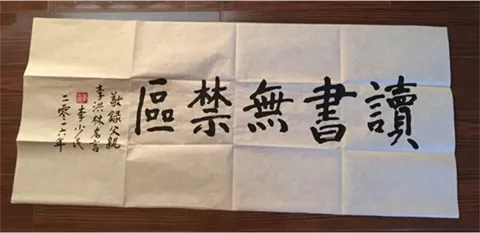 讀書無禁區
敬録父親
李洪林名言
李少民
二零一六年